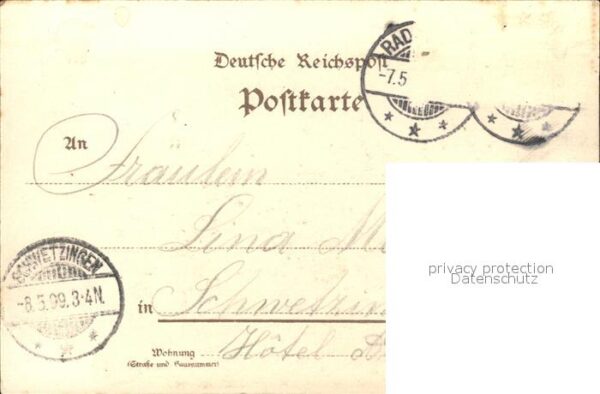 Deutsche Reichspost
Postkarte
RAD
-7.5
An
Fräulein
Lina M
SCHWETZINGEN
-8.5.99.3-4N.
in Schwetzin
Wohnung Hôtel
(Straße und Hausnummer)
privacy protection
Datenschutz